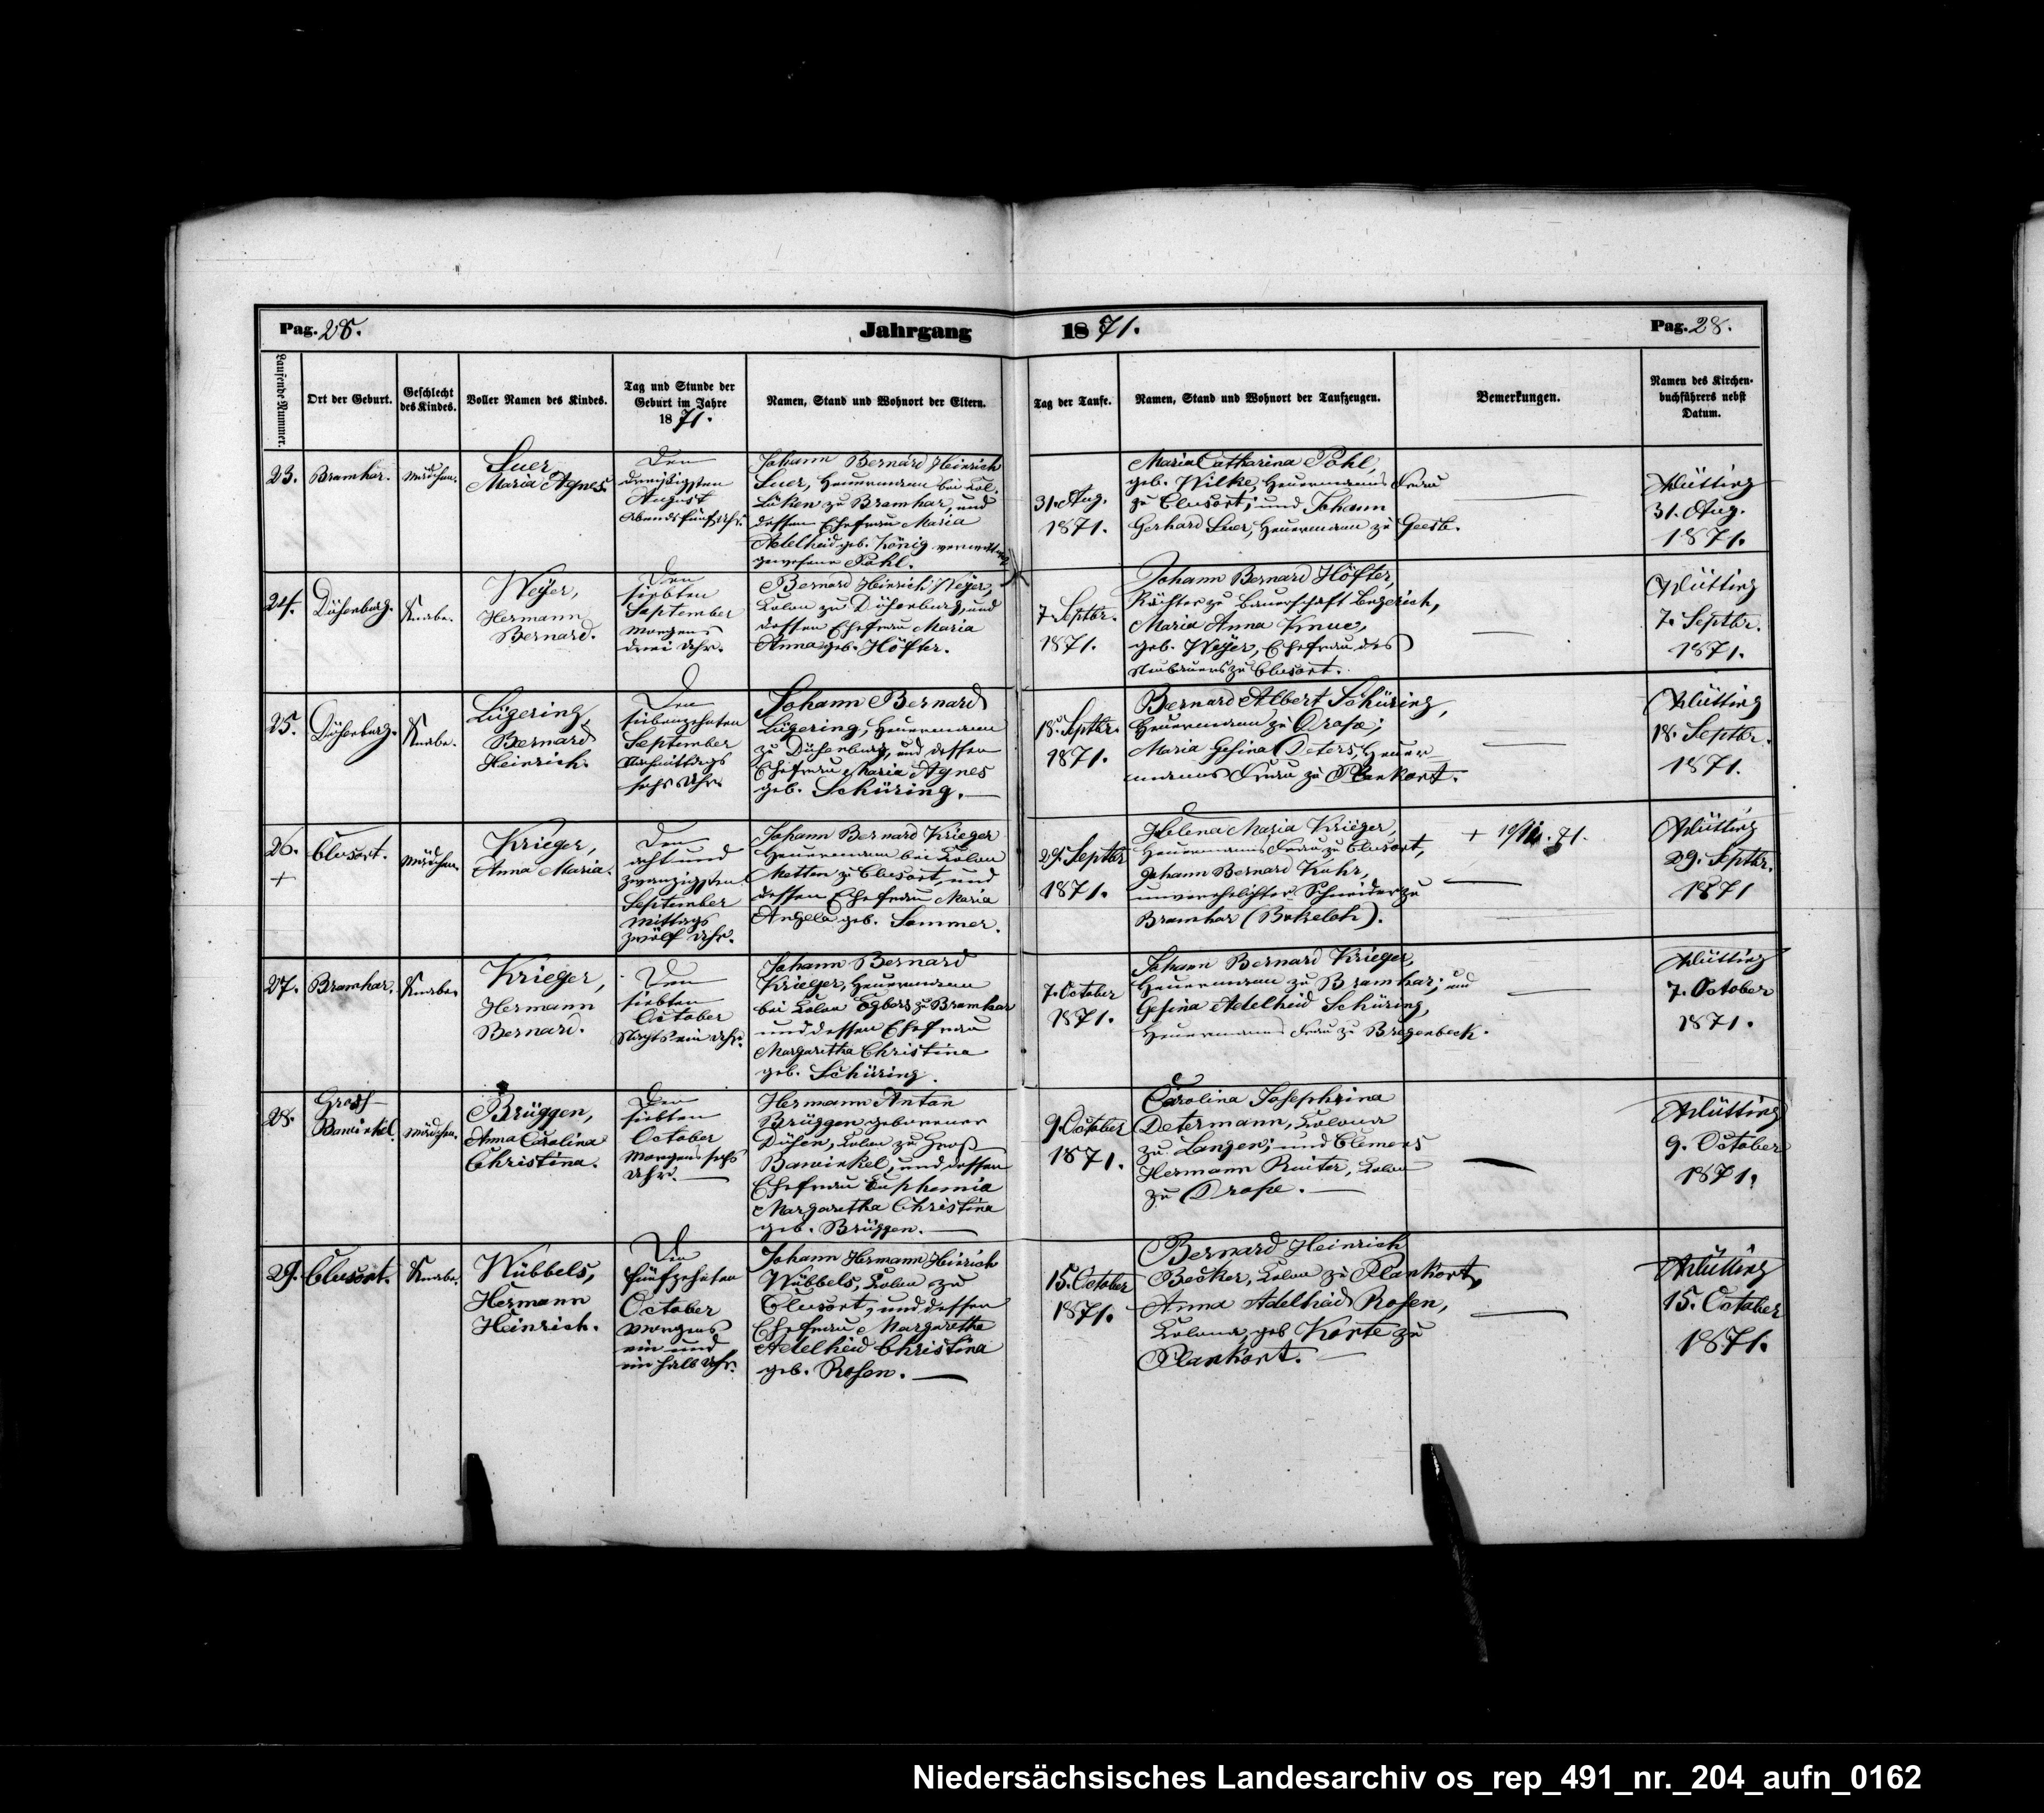 Pag. 28.
Jahrgang 1871.
Pag. 28.
Laufende Nummer.
Ort der Geburt.
Geschlecht
des Kindes.
Voller Namen des Kindes.
Tag und Stunde der
Geburt im Jahre
1871.
Namen, Stand und Wohnort der Eltern.
Tag der Taufe.
Namen, Stand und Wohnort der Taufzeugen.
Bemerkungen.
Namen des Kirchen-
buchführers nebst
Datum.
23.
Bramhar.
Mädchen.
Suer
Maria Agnes.
Den
dreißigsten
August
Abends fünf Uhr.
Johann Bernard Heinrich
Suer, Heuermann bei Col.
Lüken zu Bramhar, und
dessen Ehefrau Maria
Adelheid geb. König
gewesene Pohl.
31. Aug.
1871.
Maria Catharina Pohl,
geb. Wilke, Heuermanns Frau
zu Clusort; und Johann
Gerhard Suer, Heuermann zu Geeste.
Mütting
31. Aug.
1871.
24.
Düsenburg.
Knabe.
Weyer,
Hermann
Bernard.
Den
siebten
September
Morgens
drei Uhr.
Bernard Heinrich Weyer,
Colon zu Düsenburg, und
dessen Ehefrau Maria
Anna geb. Höfter.
7. Septbr.
1871.
Johann Bernard Höfter,
zu Bauerschaft
Maria Anna
geb. Weyer, Ehefrau des
Neubauers zu Clusort.
Mütting
7. Septbr.
1871.
25.
Düsenburg.
Knabe.
Lügering,
Bernard
Heinrich.
Den
siebenzehnten
September
Nachmittags
sechs Uhr.
Johann Bernard
Lügering, Heuermann
zu Düsenburg, und dessen
Ehefrau Maria Agnes
geb. Schüring.
18. Septbr.
1871.
Bernard Albert Schüring,
Heuermann zu Drope;
Maria Gesina Deters, Heuer-
manns Frau zu Plankort.
Mütting
18. Septbr.
1871.
26.
+
Clusort.
Mädchen.
Krieger,
Anna Maria.
Den
acht und
zwanzigsten
September
Mittags
zwölf Uhr.
Johann Bernard Krieger
Heuermann bei Colon
Metten zu Clusort, und
dessen Ehefrau Maria
Angela geb. Sommer.
29. Septbr
1871.
Helena Maria Krieger,
Heuermanns Frau zu Clusort,
Johann Bernard Kuhr,
unverehelichter Schneider zu
Bramhar (Bokeloh).
Mütting
29. Septbr.
1871
27.
Bramhar.
Knabe.
Krieger,
Hermann
Bernard.
Den
siebten
October
Nachts ein Uhr.
Johann Bernard
Krieger, Heuermann
bei Colon Egbers zu Bramhar
und dessen Ehefrau
Margaretha Christina
geb. Schüring.
7. October
1871.
Johann Bernard Krieger,
Heuermann zu Bramhar; und
Gesina Adelheid Schüring,
Heuermanns Frau zu Bregenbeck.
Mütting
7. October
1871.
28.
Gross-
Bawinkel
Mädchen.
Brüggen,
Anna Carolina
Christina.
Den
siebten
October
Morgens sechs
Uhr.
Hermann Anton
Brüggen geborener
Düsen, Colon zu Groß
Bawinkel, und dessen
Ehefrau Euphemia
Margaretha Christina
geb. Brüggen.
9. October
1871.
Carolina Josephina
Determann, Colona
zu Langen; und Clemens
Hermann Ruiter, Colon
zu Drope.
Mütting
9. October
1871.
29.
Clusort.
Knabe.
Wübbels,
Hermann
Heinrich.
Den
fünfzehnten
October
Morgens
ein und
ein halb Uhr.
Johann Hermann Heinrich
Wübbels, Colon zu
Clusort, und dessen
Ehefrau Margaretha
Adelheid Christina
geb. Rosen.
15. October
1871.
Bernard Heinrich
Becker, Colon zu Plankort,
Anna Adelheid Rosen,
Colona, geb. Korte zu
Plankort.
Mütting
15. October
1871.
Niedersächsisches Landesarchiv os_rep_491_nr._204_aufn_0162